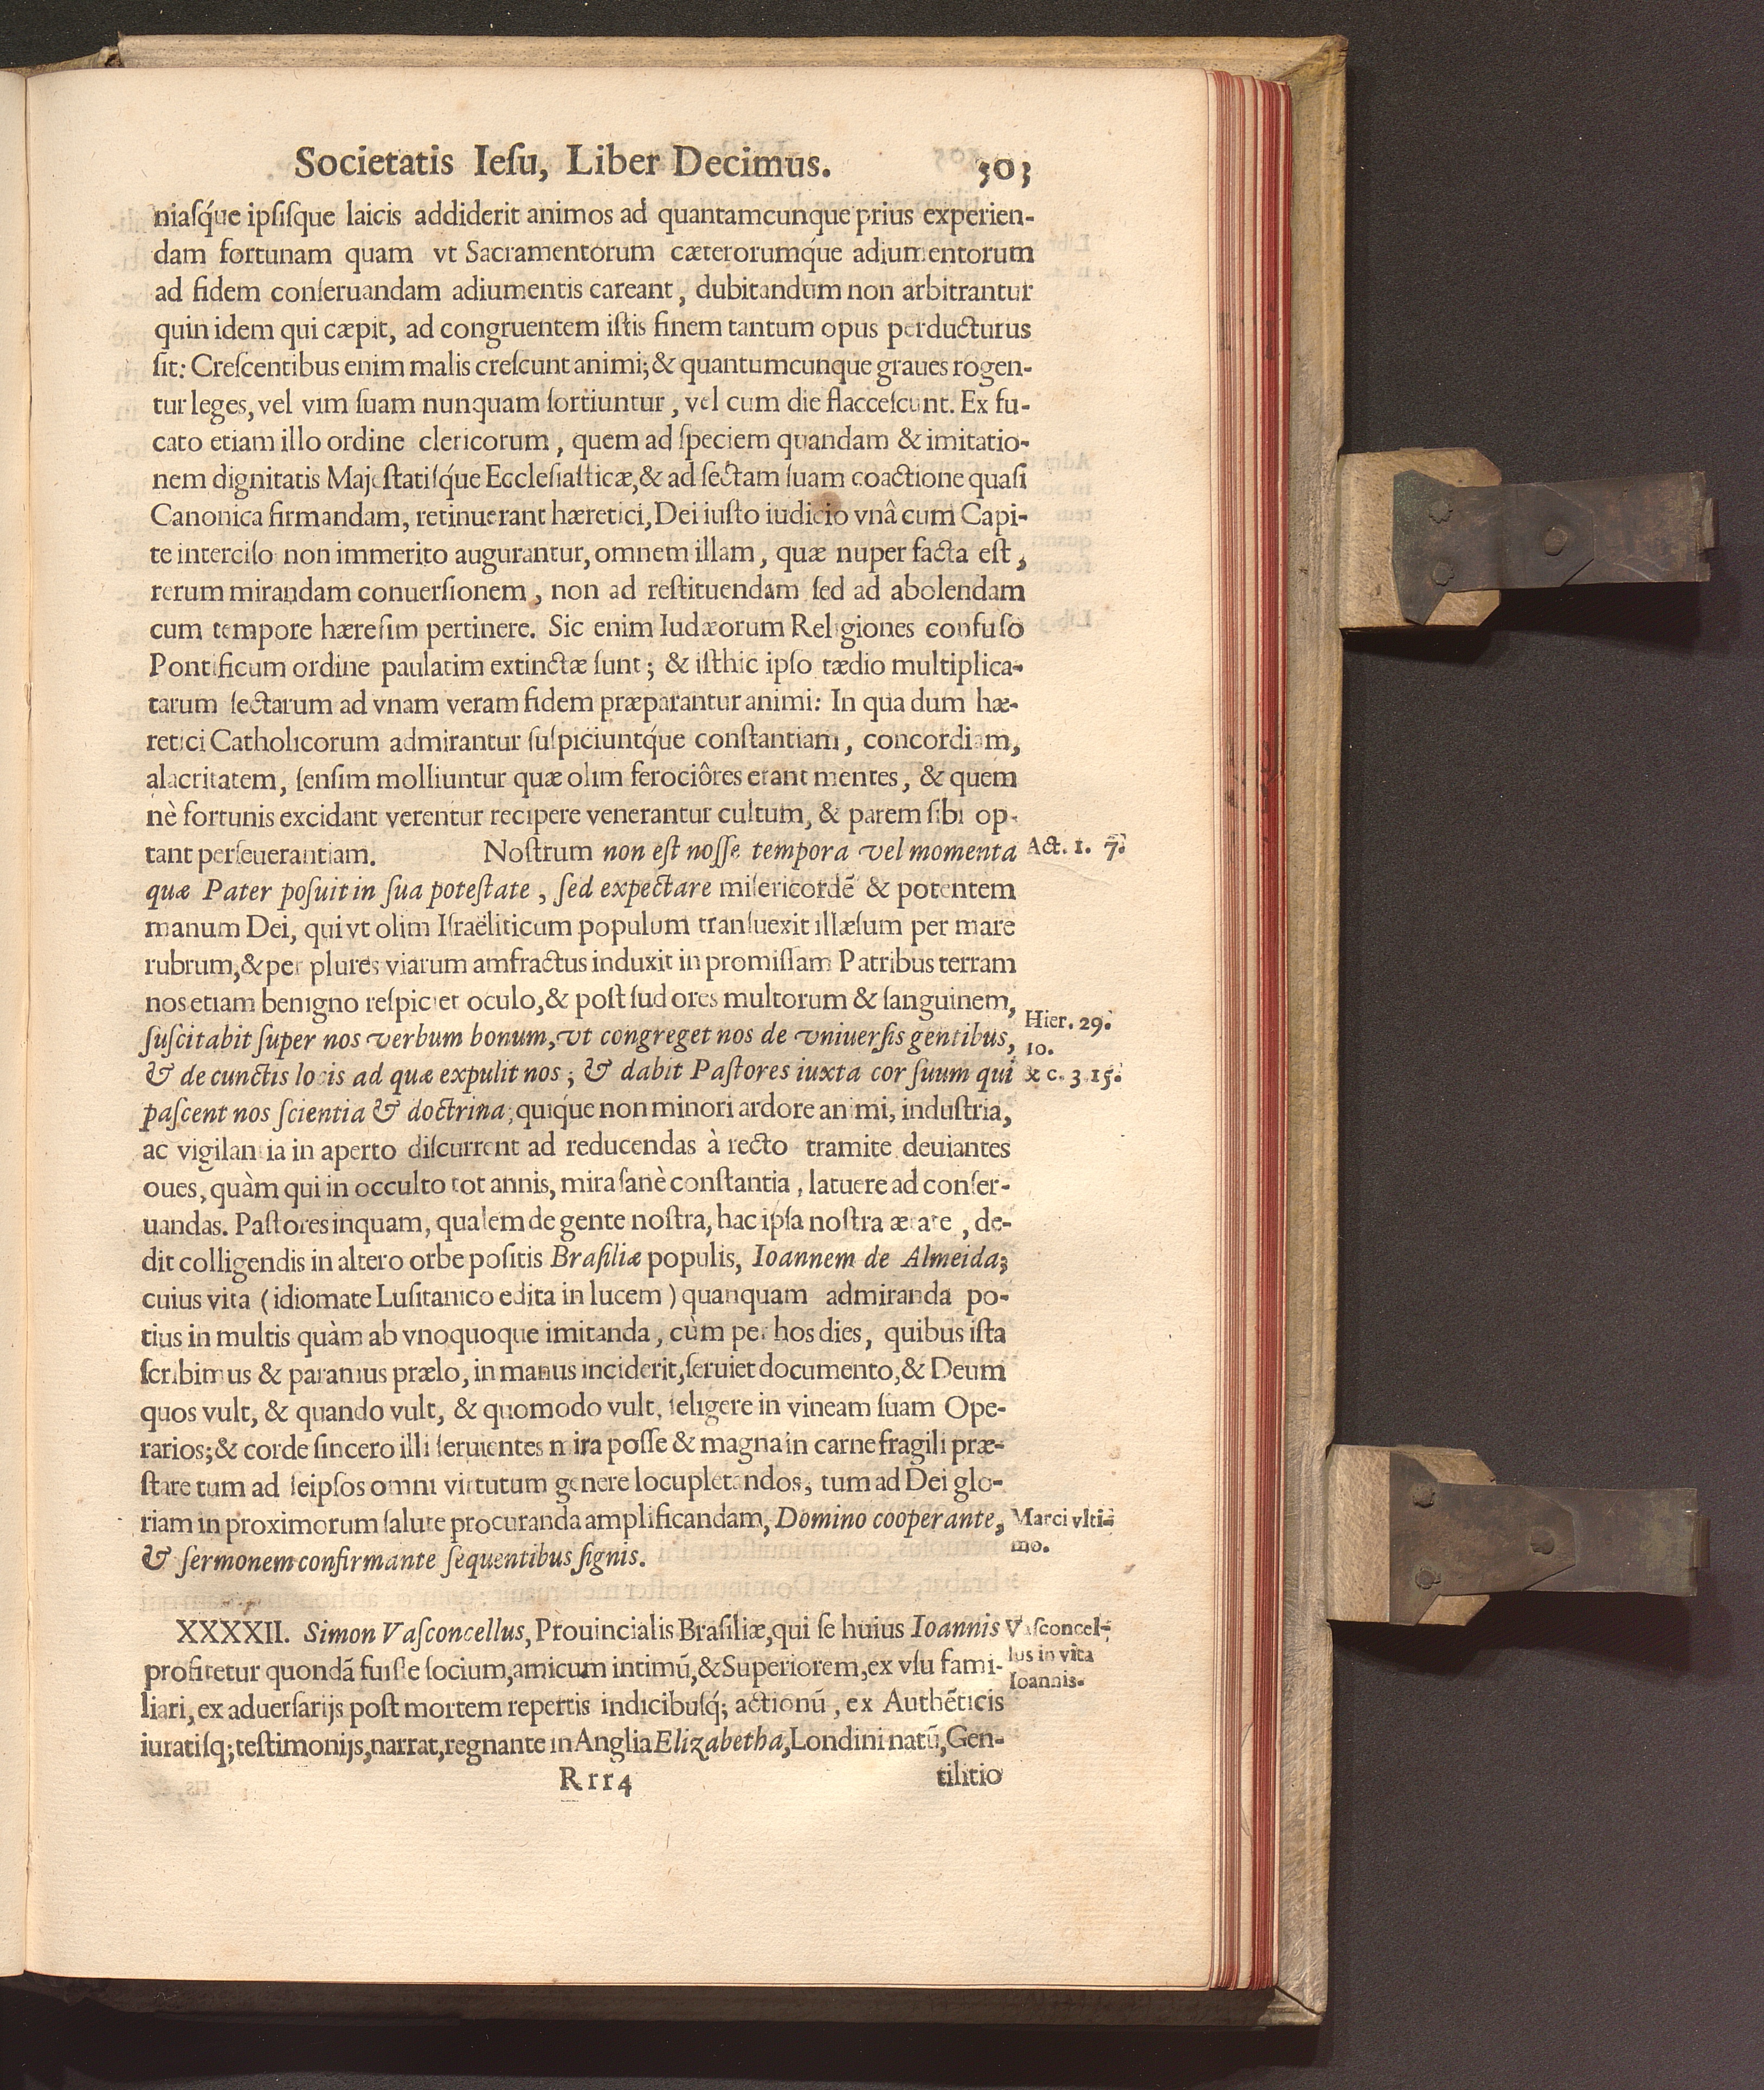 Societatis Ieſu, Liber Decimus. 503
niaſq́ue ipſiſque laicis addiderit animos ad quantamcunque prius experien-
dam fortunam quam vt Sacramentorum cæterorumq́ue adiumentorum
ad fidem conſeruandam adiumentis careant, dubitandum non arbitrantur
quin idem qui cæpit, ad congruentem iſtis finem tantum opus perducturus
ſit: Creſcentibus enim malis creſcunt animi; & quantumcunque graues rogen-
tur leges, vel vim ſuam nunquam ſortiuntur, vel cum die flacceſcunt. Ex fu-
cato etiam illo ordine clericorum, quem ad ſpeciem quandam & imitatio-
nem dignitatis Majeſtatiſq́ue Eccleſiaſticæ, & ad ſectam ſuam coactione quaſi
Canonica firmandam, retinuerant hæretici, Dei iuſto iudicio vnâ cum Capi-
te interciſo non immerito augurantur, omnem illam, quæ nuper facta eſt,
rerum mirandam conuerſionem, non ad reſtituendam ſed ad abolendam
cum tempore hæreſim pertinere. Sic enim Iudæorum Religiones confuſo
Pontificum ordine paulatim extinctæ ſunt; & iſthic ipſo tædio multiplica-
tarum ſectarum ad vnam veram fidem præparantur animi: In qua dum hæ-
retici Catholicorum admirantur ſuſpiciuntq́ue conſtantiam, concordiam,
alacritatem, ſenſim molliuntur quæ olim ferociôres erant mentes, & quem
nè fortunis excidant verentur recipere venerantur cultum, & parem ſibi op-
tant perſeuerantiam. Noſtrum non eſt noſſe tempora vel momenta
Act. 1. 7.
quæ Pater poſuit in ſua poteſtate, ſed expectare miſericordẽ & potentem
manum Dei, qui vt olim Iſraëliticum populum tranſuexit illæſum per mare
rubrum, & per plures viarum amfractus induxit in promiſſam Patribus terram
nos etiam benigno reſpiciet oculo, & poſt ſudores multorum & ſanguinem,
ſuſcitabit ſuper nos verbum bonum, vt congreget nos de vniuerſis gentibus,
Hier. 29.
10.
& de cunctis locis ad quæ expulit nos; & dabit Paſtores iuxta cor ſuum qui
& c. 3. 15.
paſcent nos ſcientia & doctrina; quiq́ue non minori ardore animi, induſtria,
ac vigilantia in aperto diſcurrent ad reducendas à recto tramite deuiantes
oues, quàm qui in occulto tot annis, mira ſanè conſtantia, latuere ad conſer-
uandas. Paſtores inquam, qualem de gente noſtra, hac ipſa noſtra ætate, de-
dit colligendis in altero orbe poſitis Braſiliæ populis, Ioannem de Almeida;
cuius vita (idiomate Luſitanico edita in lucem) quanquam admiranda po-
tius in multis quàm ab vnoquoque imitanda, cùm per hos dies, quibus iſta
ſcribimus & paramus prælo, in manus inciderit, ſeruiet documento, & Deum
quos vult, & quando vult, & quomodo vult, ſeligere in vineam ſuam Ope-
rarios; & corde ſincero illi ſeruientes mira poſſe & magna in carne fragili præ-
ſtare tum ad ſeipſos omni virtutum genere locupletandos, tum ad Dei glo-
riam in proximorum ſalute procuranda amplificandam, Domino cooperante,
Marci vlti-
mo.
& ſermonem confirmante ſequentibus ſignis.
XXXXII. Simon Vaſconcellus, Prouincialis Braſiliæ, qui ſe huius Ioannis
Vaſconcel-
lus in vita
Ioannis.
profitetur quondã fuiſſe ſocium, amicum intimũ, & Superiorem, ex vſu fami-
liari, ex aduerſarijs poſt mortem repertis indicibuſq́; actionũ, ex Authẽticis
iuratiſq; teſtimonijs, narrat, regnante in Anglia Elizabetha, Londini natũ, Gen-
Rrr4 tilitio